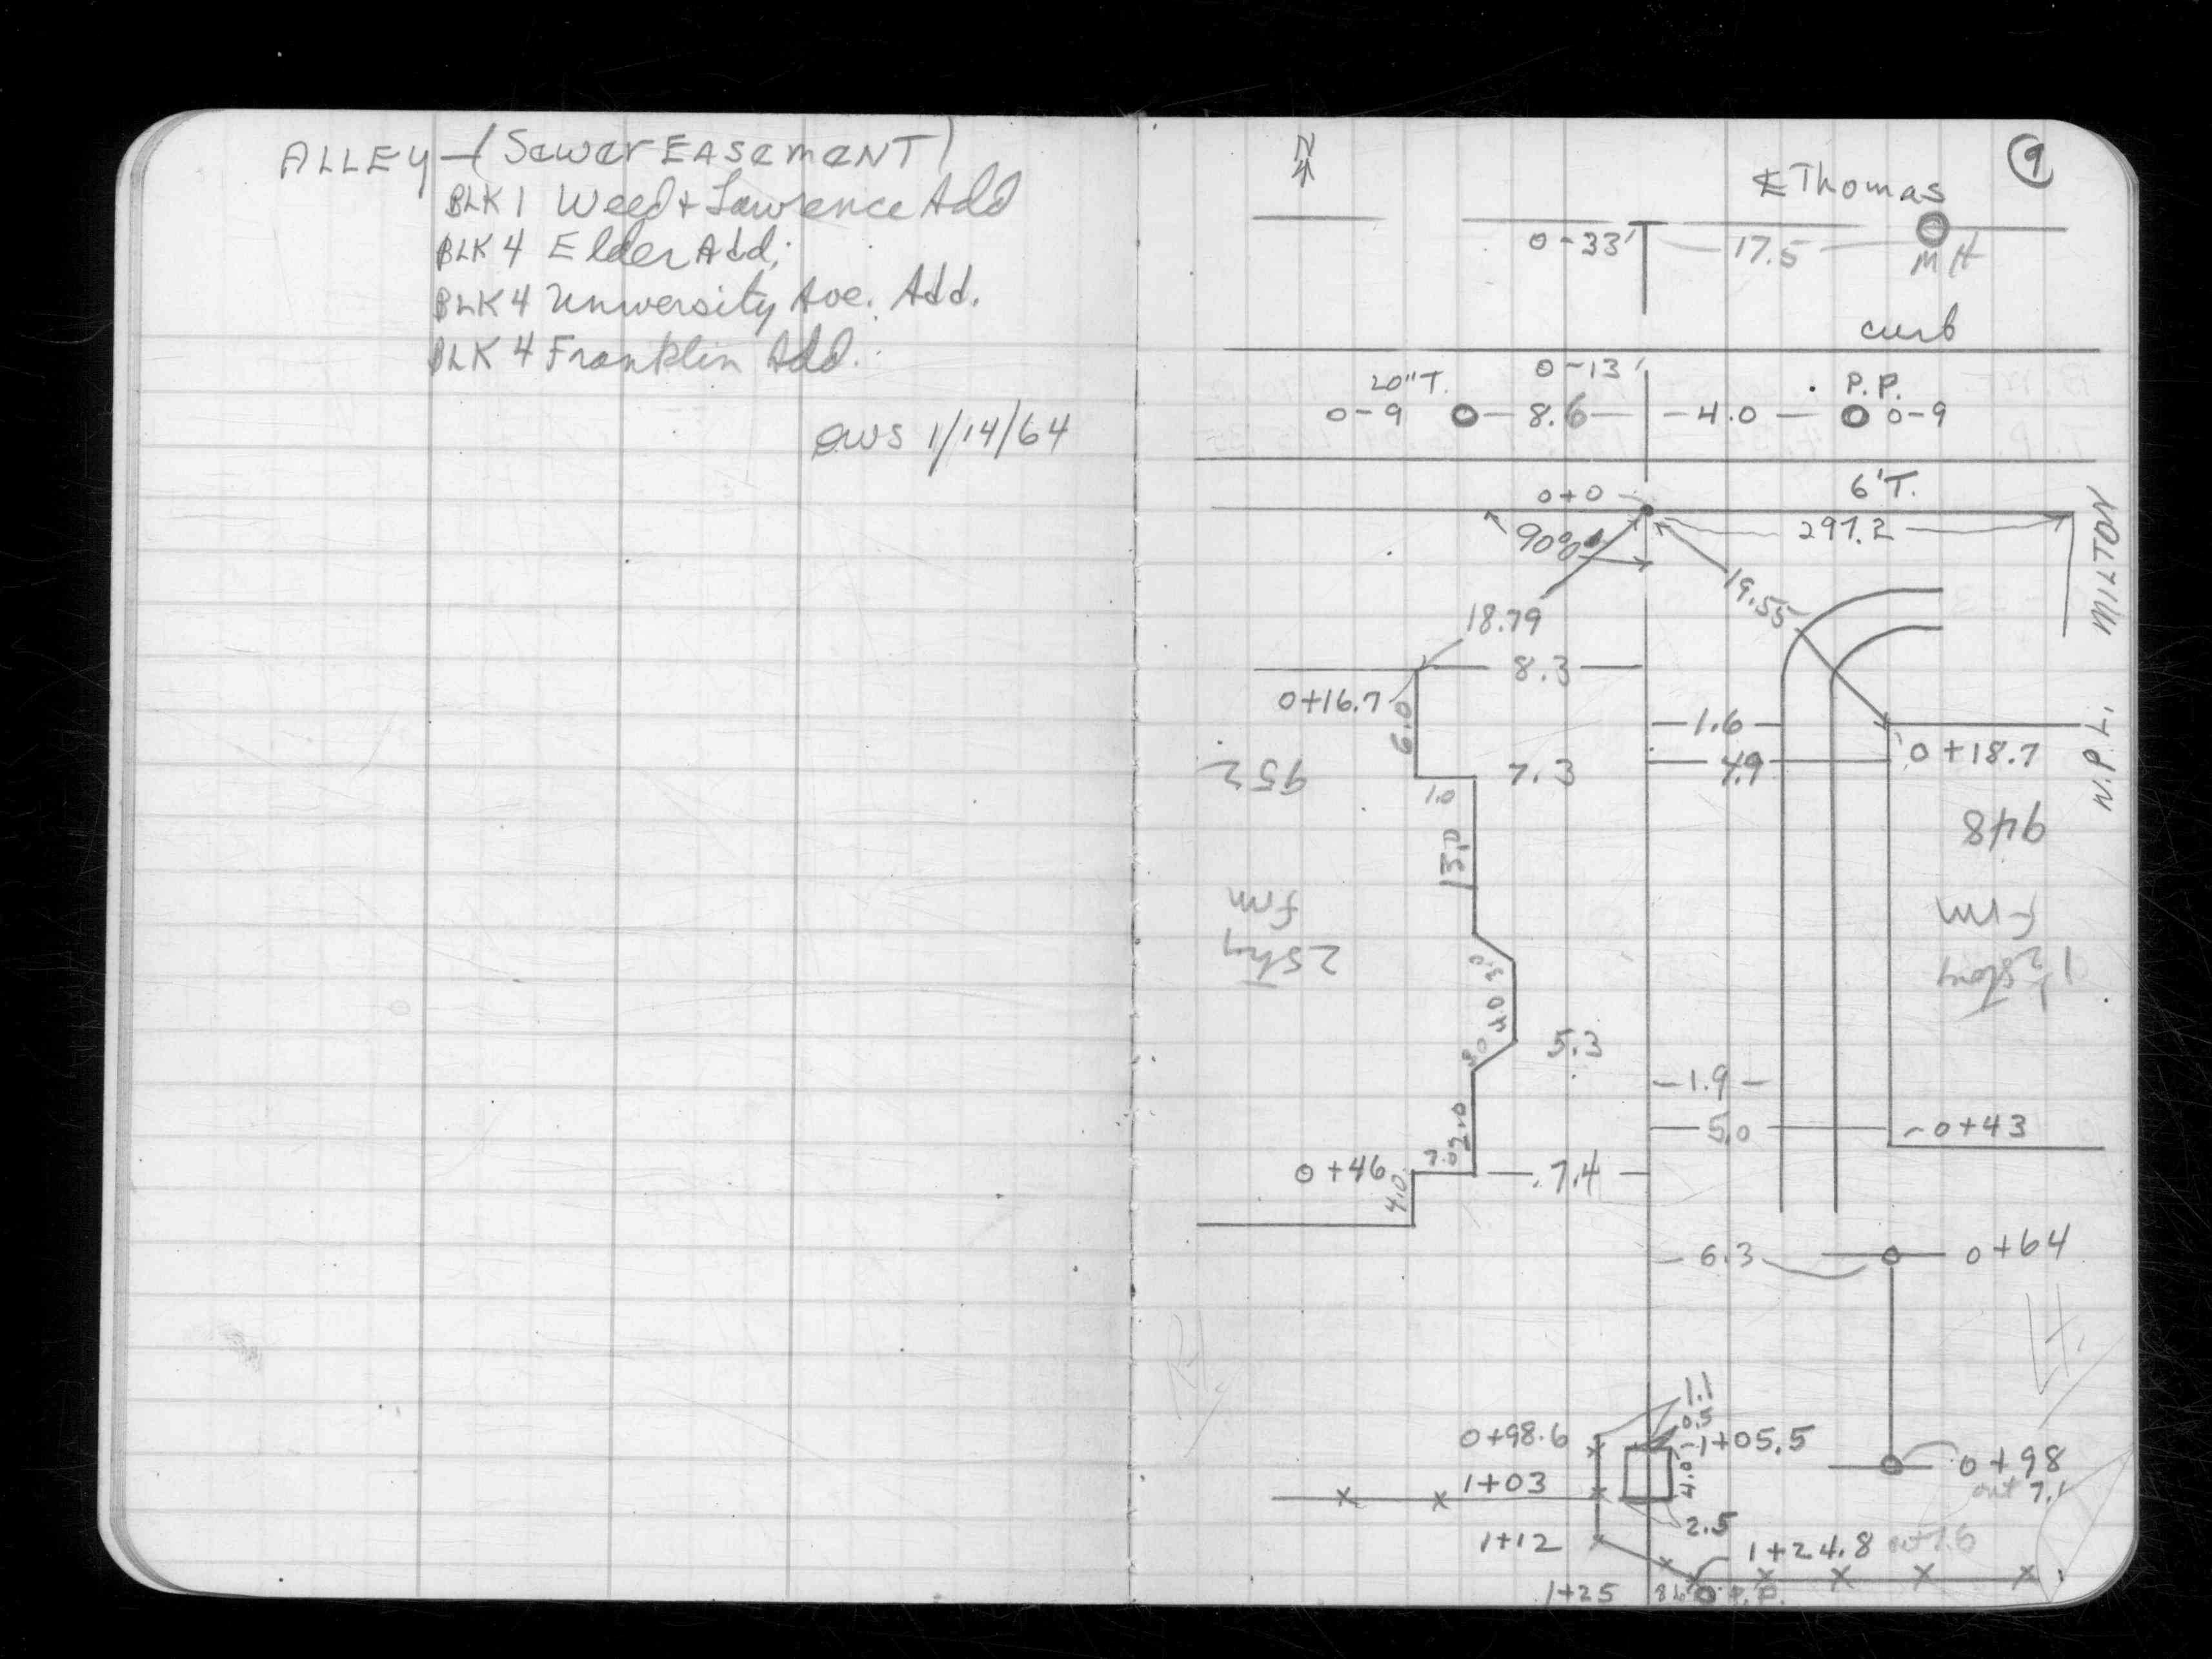 ALLEY - (Sewer EASEMENT)
BLK 1 Weed + Lawrence Add
BLK 4 Elder Add;
BLK 4 University Ave. Add.
BLK 4 Franklin Add.
1/14/64
N
9
℄ Thomas
0-33' 17.5
MH
curb
0-13'
20"T. P.P.
0-9 8.6 4.0 0-9
0+0 6'T.
90° 297.2
MILTON
W.P.L.
18.79 19.55
8.3
0+16.7
6.0
1.6
7.3 4.9 0+18.7
952
1.0
948
13.0
frm
Frm
2 Sty
1½ story
3.0
4.0
3.0 5.3
1.9
5.0 0+43
0+46 7.4
4.0
6.3 0+64
Rt
Lt.
1.1
0.5
0+98.6 1+05.5
4.0
1+03 0+98
out 7.1
2.5
1+12 1+24.8
1+25 P.P.